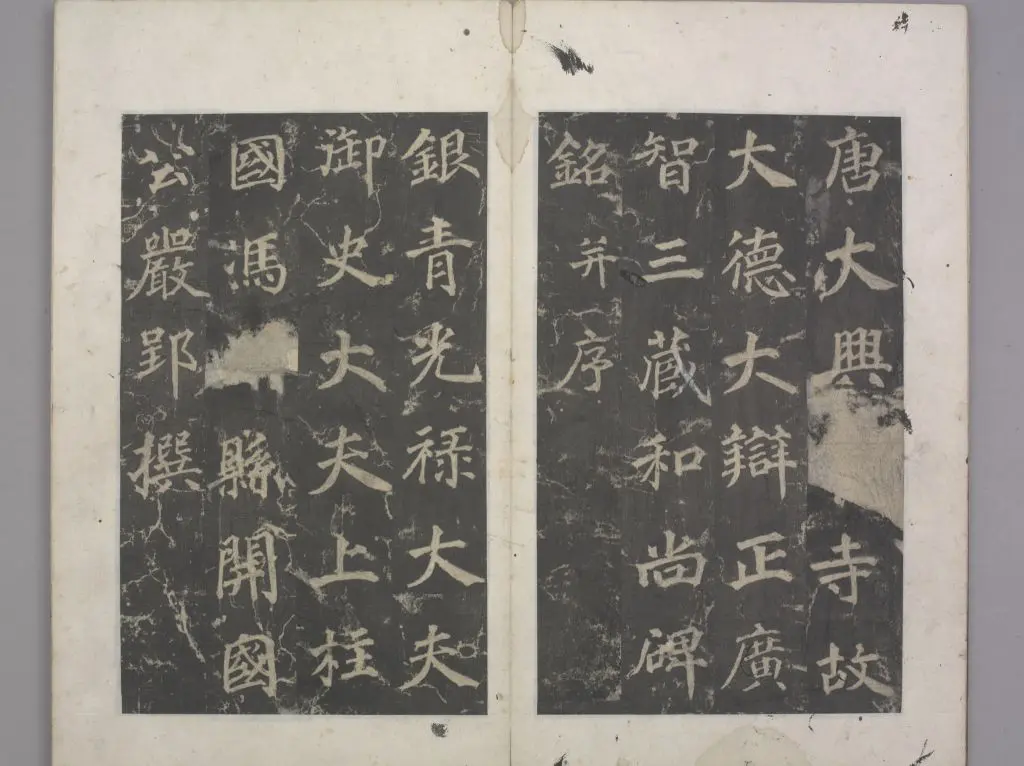 唐大興寺故
大德大辯正廣
智三藏和尚碑
銘并序
銀青光祿大夫
御史大夫上柱
國馮縣開國
公嚴郢撰